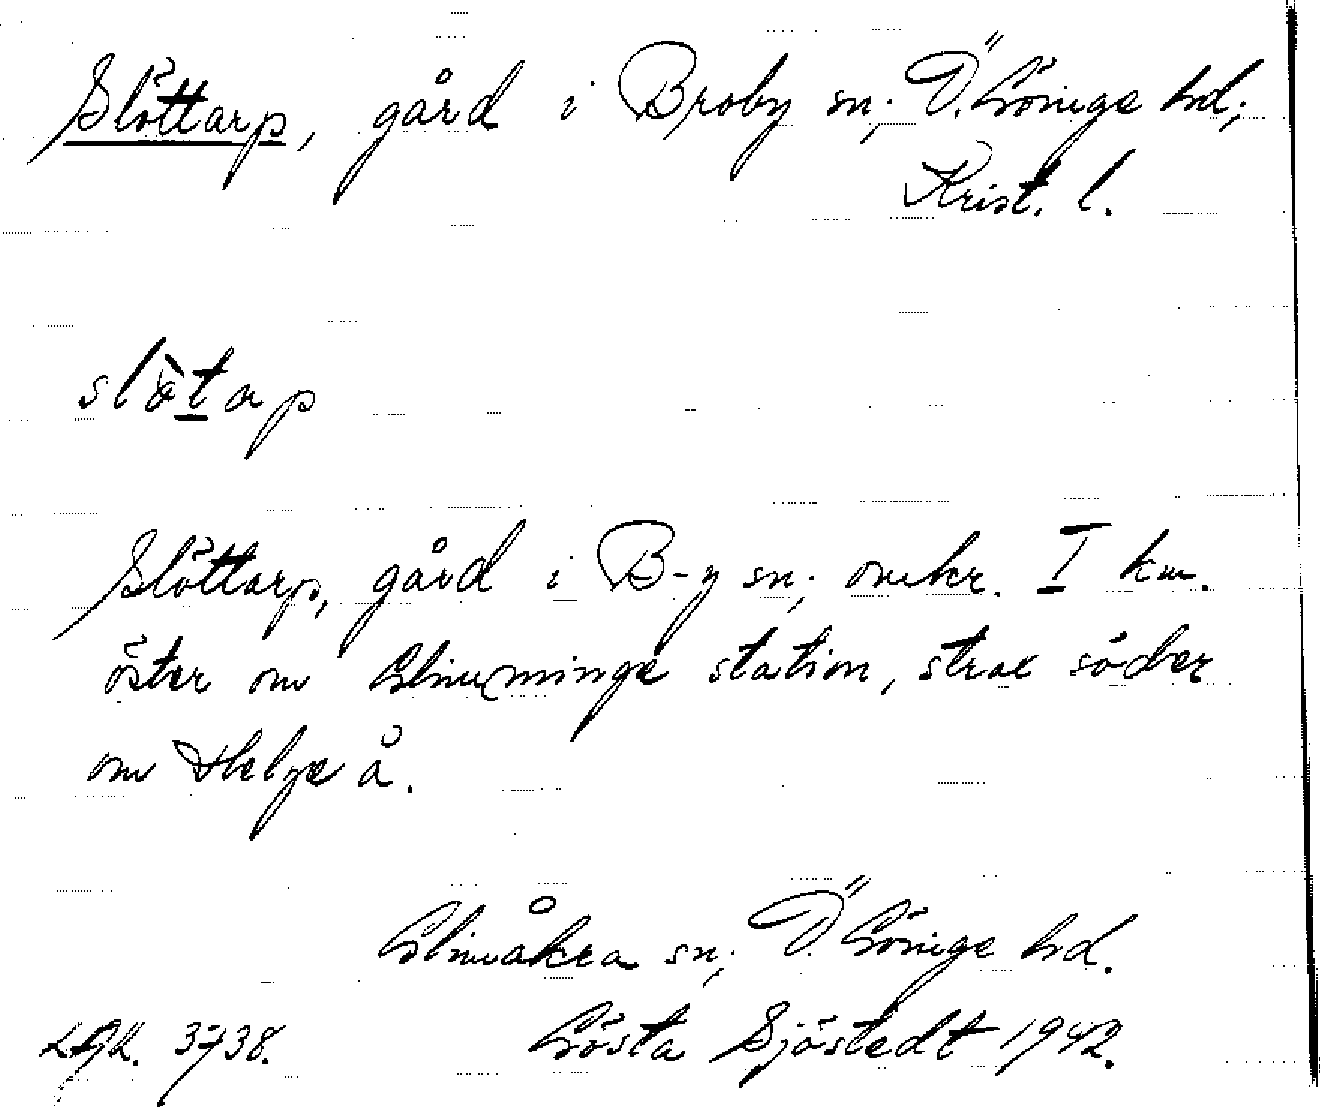 Slöttarp, gård i Broby sn; Ö. Göinge hd;
Krist. l.
slὸtap
Slöttarp, gård i B-y sn; omkr. I km.
öster om Glimminge station, strax söder
om Helge å.
Glimåkra sn; Ö. Göinge hd.
3738.
Gösta Sjöstedt 1942.